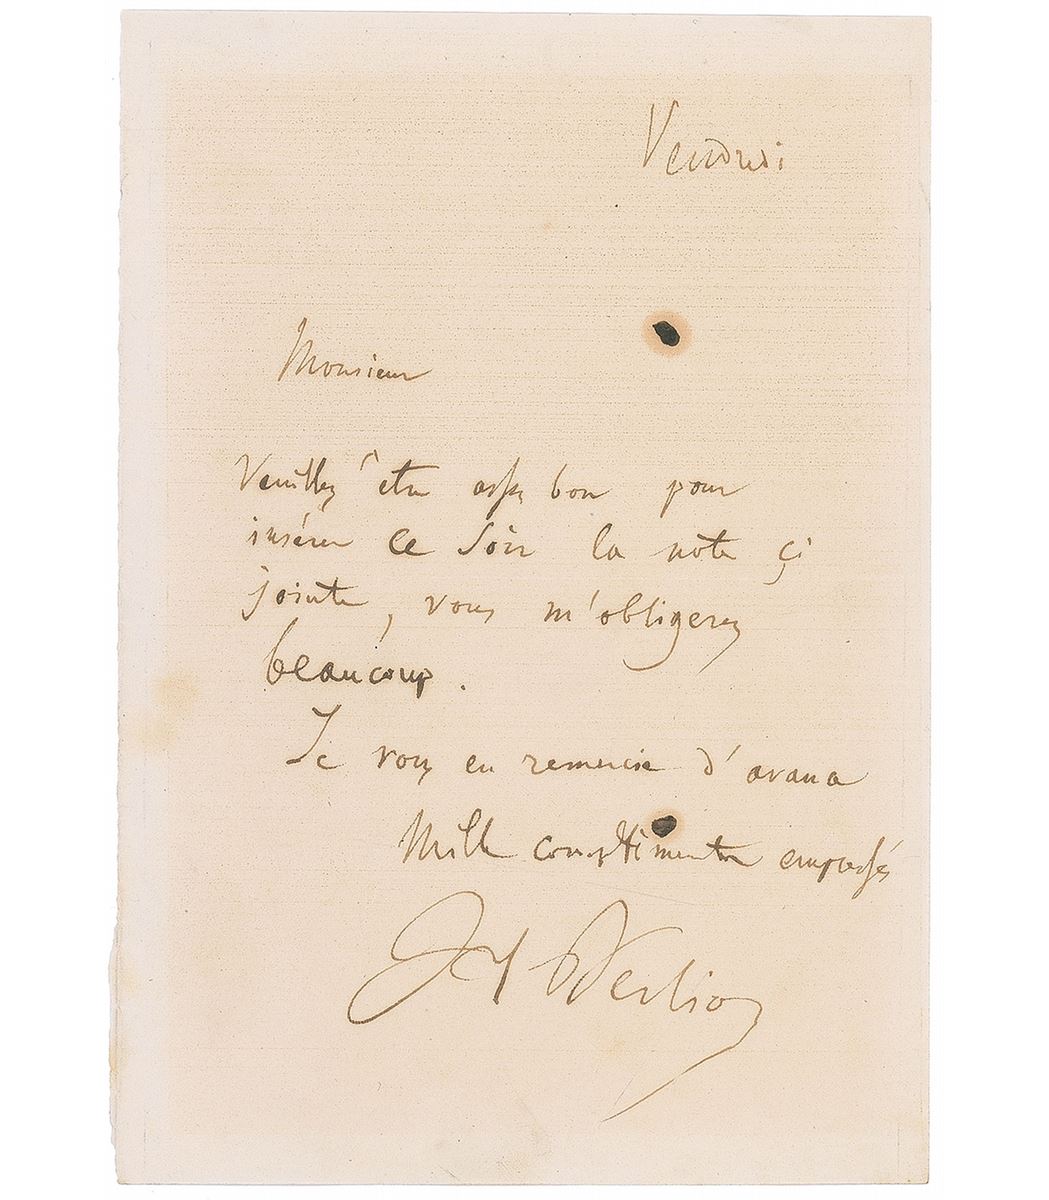 Vendredi
Monsieur
Veuillez être assez bon pour
insérer ce soir la note çi
jointe, vous m'obligerez
beaucoup.
Je vous en remercie d'avance
Mille compliments empressés
H Berlioz